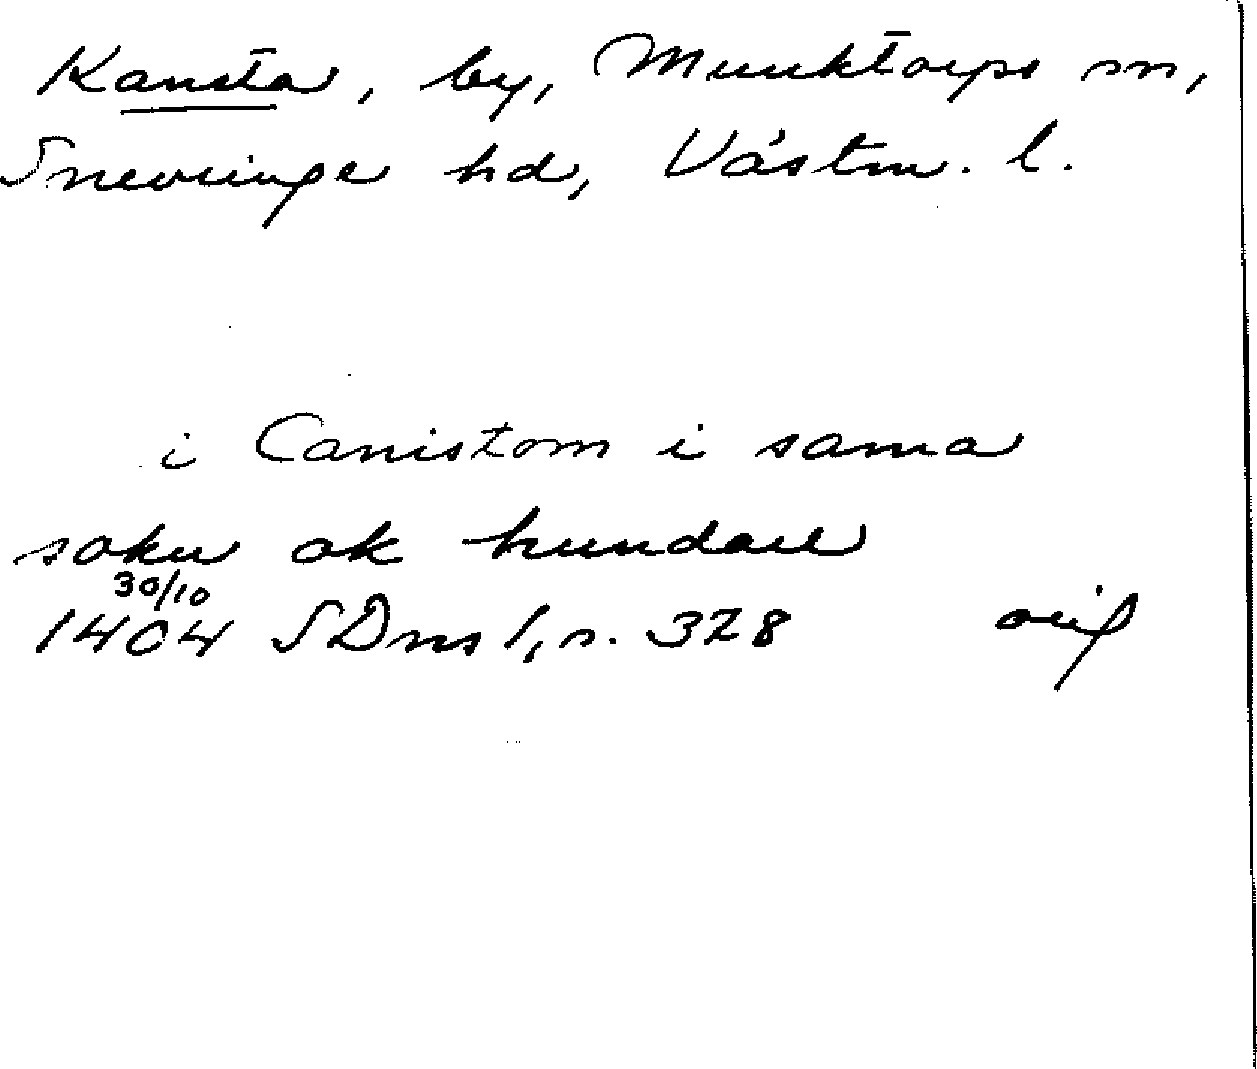 Kansta, by, Munktorps sn,
Snevringe hd, Västm. l.
i Canistom i sama
sokn ok hundare
30/10
1404 SDns 1, s. 328 orig